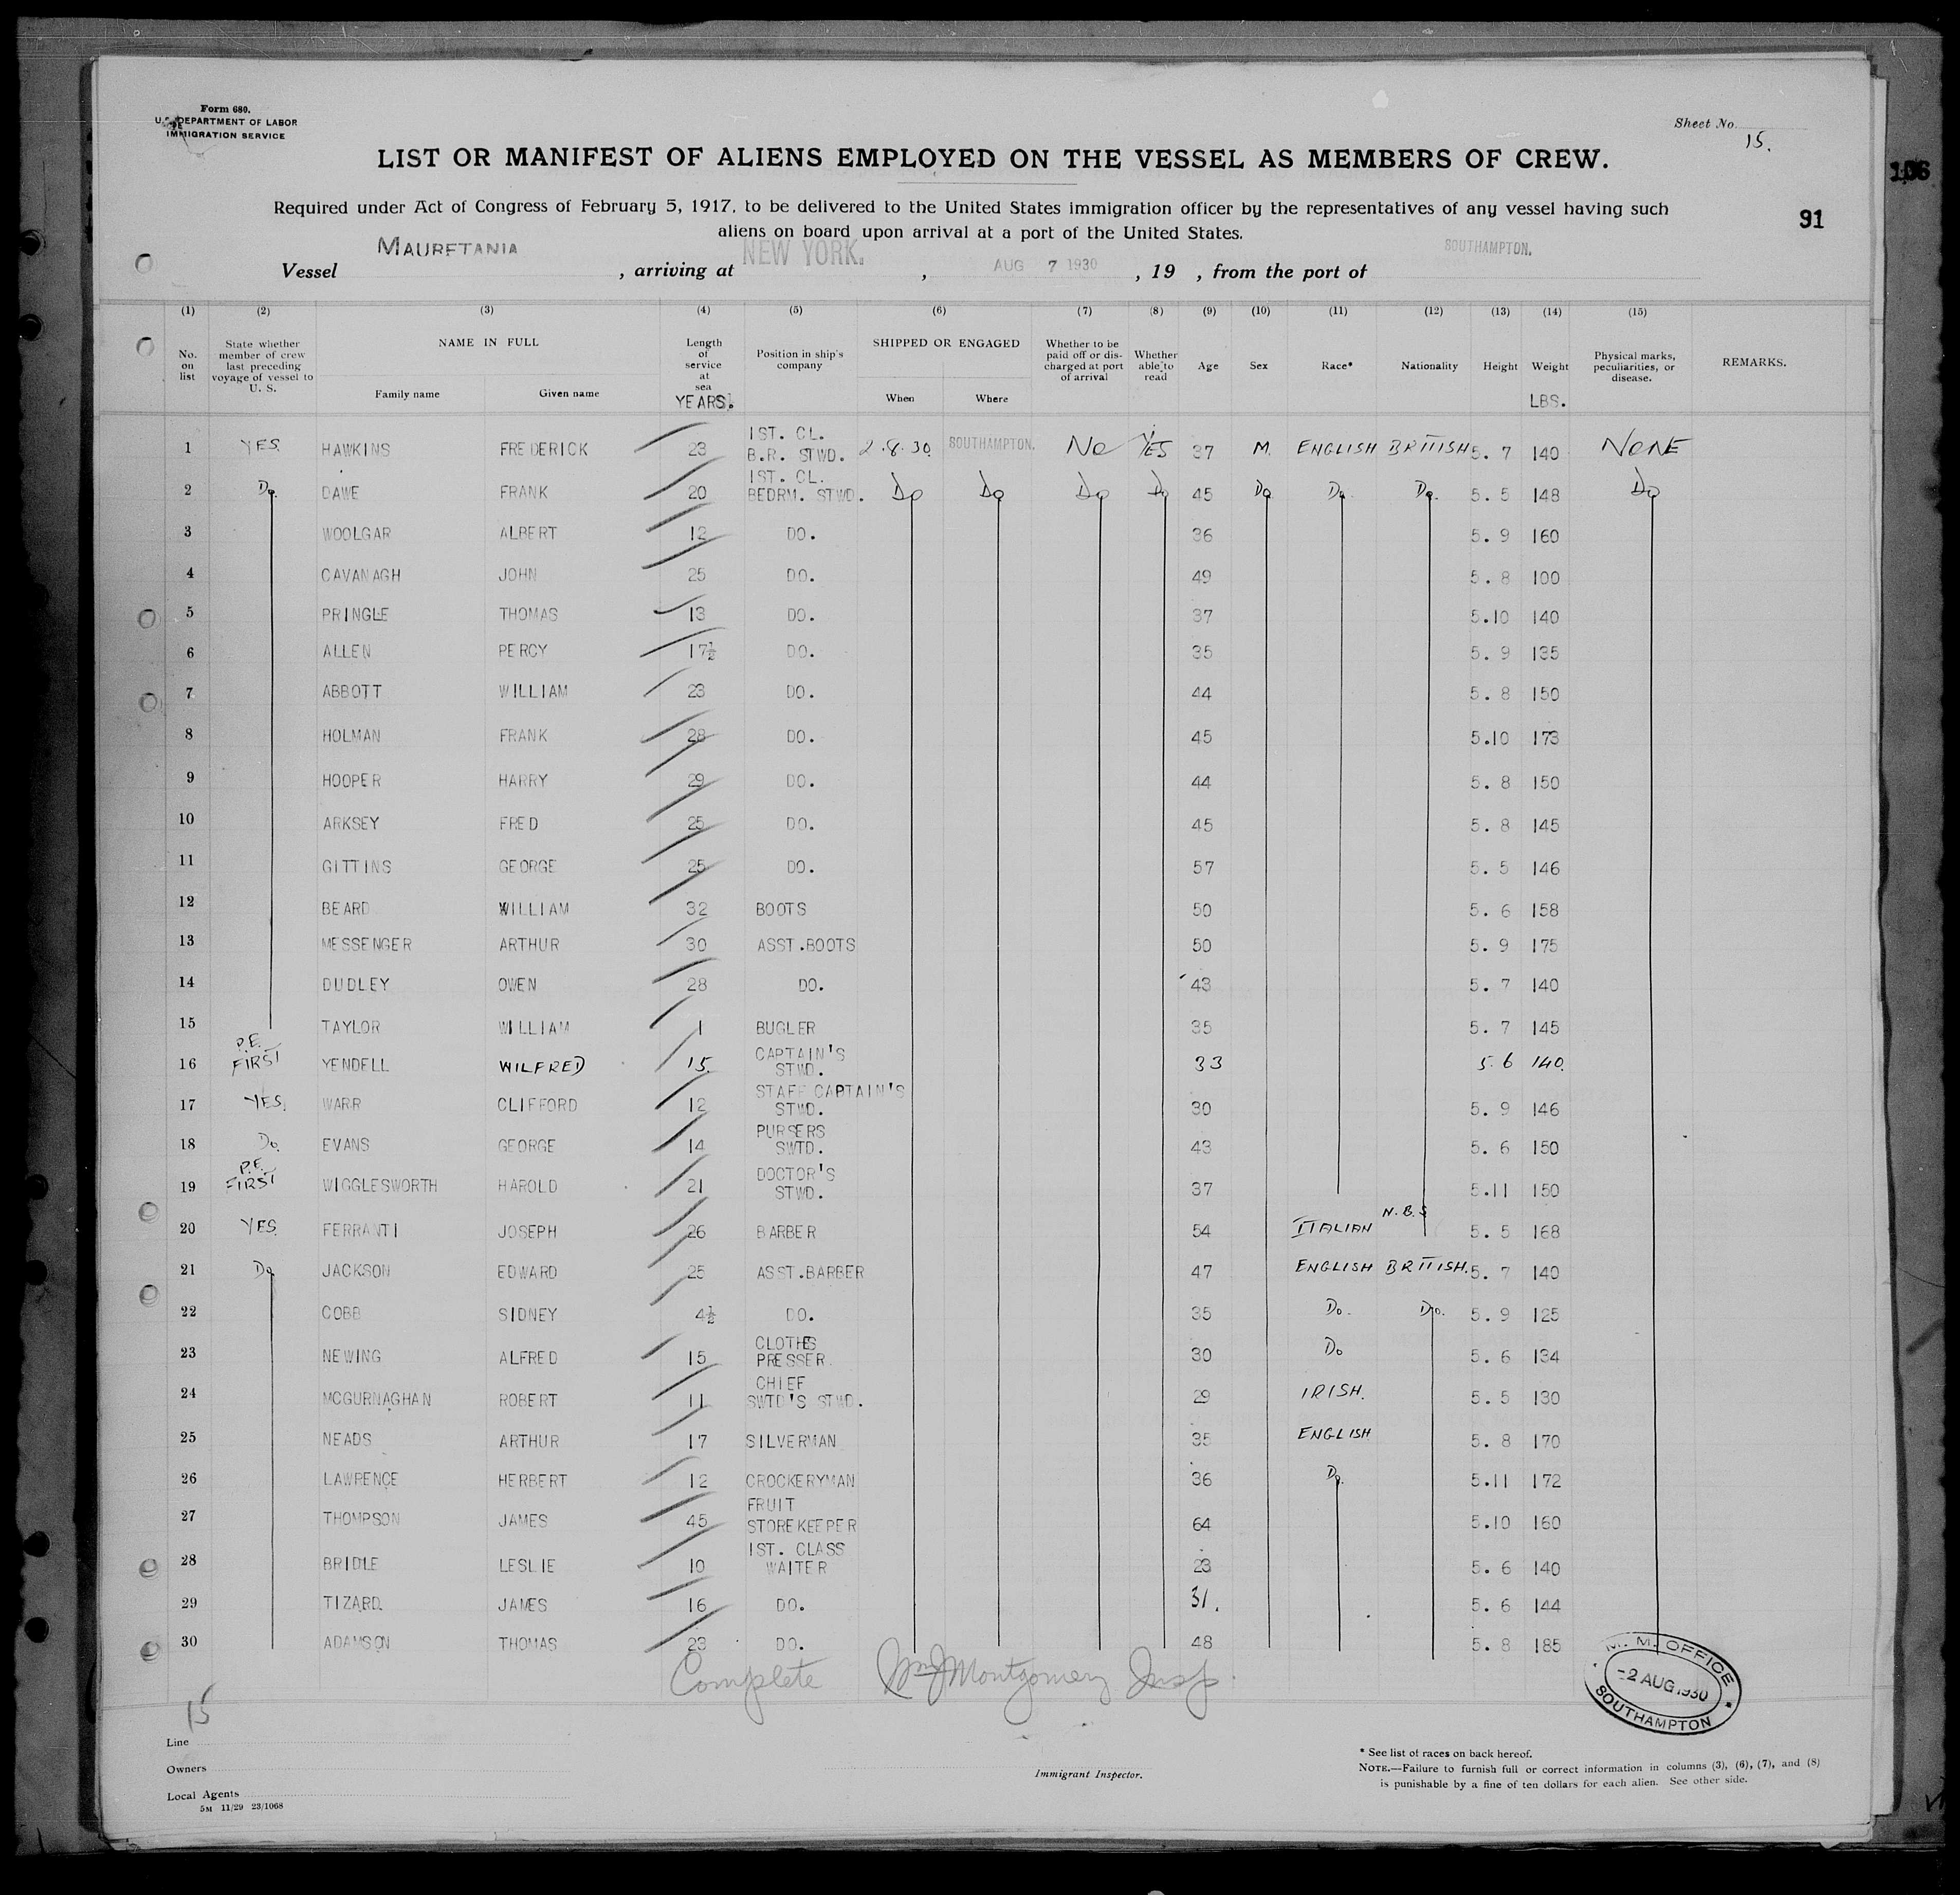 Form 680.
U.S. DEPARTMENT OF LABOR
IMMIGRATION SERVICE
Sheet No.
15.
LIST OR MANIFEST OF ALIENS EMPLOYED ON THE VESSEL AS MEMBERS OF CREW.
106
Required under Act of Congress of February 5, 1917, to be delivered to the United States immigration officer by the representatives of any vessel having such
91
aliens on board upon arrival at a port of the United States.
Vessel MAURETANIA, arriving at NEW YORK., AUG 7 1930, 19 , from the port of SOUTHAMPTON.
(1) (2) (3) (4) (5) (6) (7) (8) (9) (10) (11) (12) (13) (14) (15)
No. on list State whether member of crew last preceding voyage of vessel to U. S. NAME IN FULL Family name Given name Length of service at sea YEARS. Position in ship's company SHIPPED OR ENGAGED When Where Whether to be paid off or discharged at port of arrival Whether able to read Age Sex Race* Nationality Height Weight LBS. Physical marks, peculiarities, or disease. REMARKS.
1 YES. HAWKINS FREDERICK 23 1ST. CL. B.R. STWD. 2.8.30. SOUTHAMPTON. No YES 37 M. ENGLISH BRITISH 5. 7 140 NONE
2 Do. DAWE FRANK 20 1ST. CL. BEDRM. STWD. Do Do Do Do 45 Do Do. Do. 5. 5 148 Do
3 WOOLGAR ALBERT 12 DO. 36 5. 9 160
4 CAVANAGH JOHN 25 DO. 49 5. 8 100
5 PRINGLE THOMAS 13 DO. 37 5.10 140
6 ALLEN PERCY 17½ DO. 35 5. 9 135
7 ABBOTT WILLIAM 23 DO. 44 5. 8 150
8 HOLMAN FRANK 28 DO. 45 5.10 173
9 HOOPER HARRY 29 DO. 44 5. 8 150
10 ARKSEY FRED 25 DO. 45 5. 8 145
11 GITTINS GEORGE 25 DO. 57 5. 5 146
12 BEARD WILLIAM 32 BOOTS 50 5. 6 158
13 MESSENGER ARTHUR 30 ASST.BOOTS 50 5. 9 175
14 DUDLEY OWEN 28 DO. 43 5. 7 140
15 TAYLOR WILLIAM 1 BUGLER 35 5. 7 145
16 P.E. FIRST YENDELL WILFRED 15. CAPTAIN'S STWD. 33 5.6 140.
17 YES. WARR CLIFFORD 12 STAFF CAPTAIN'S STWD. 30 5. 9 146
18 Do. EVANS GEORGE 14 PURSERS SWTD. 43 5. 6 150
19 P.E. FIRST WIGGLESWORTH HAROLD 21 DOCTOR'S STWD. 37 5.11 150
20 YES. FERRANTI JOSEPH 26 BARBER 54 ITALIAN N.B.S 5. 5 168
21 Do JACKSON EDWARD 25 ASST.BARBER 47 ENGLISH BRITISH. 5. 7 140
22 COBB SIDNEY 4½ DO. 35 Do. Do. 5. 9 125
23 NEWING ALFRED 15 CLOTHES PRESSER. 30 Do 5. 6 134
24 MCGURNAGHAN ROBERT 11 CHIEF SWTD'S STWD. 29 IRISH. 5. 5 130
25 NEADS ARTHUR 17 SILVERMAN 35 ENGLISH 5. 8 170
26 LAWRENCE HERBERT 12 CROCKERYMAN 36 Do. 5.11 172
27 THOMPSON JAMES 45 FRUIT STOREKEEPER 64 5.10 160
28 BRIDLE LESLIE 10 1ST. CLASS WAITER 23 5. 6 140
29 TIZARD. JAMES 16 DO. 31. 5. 6 144
30 ADAMSON THOMAS 23 DO. 48 5. 8 185
Complete Wm J Montgomery Insp.
M. M. OFFICE
-2 AUG 1930
SOUTHAMPTON
15
Line
Owners
Local Agents
5M 11/29 23/1068
Immigrant Inspector.
* See list of races on back hereof.
NOTE.—Failure to furnish full or correct information in columns (3), (6), (7), and (8)
is punishable by a fine of ten dollars for each alien. See other side.